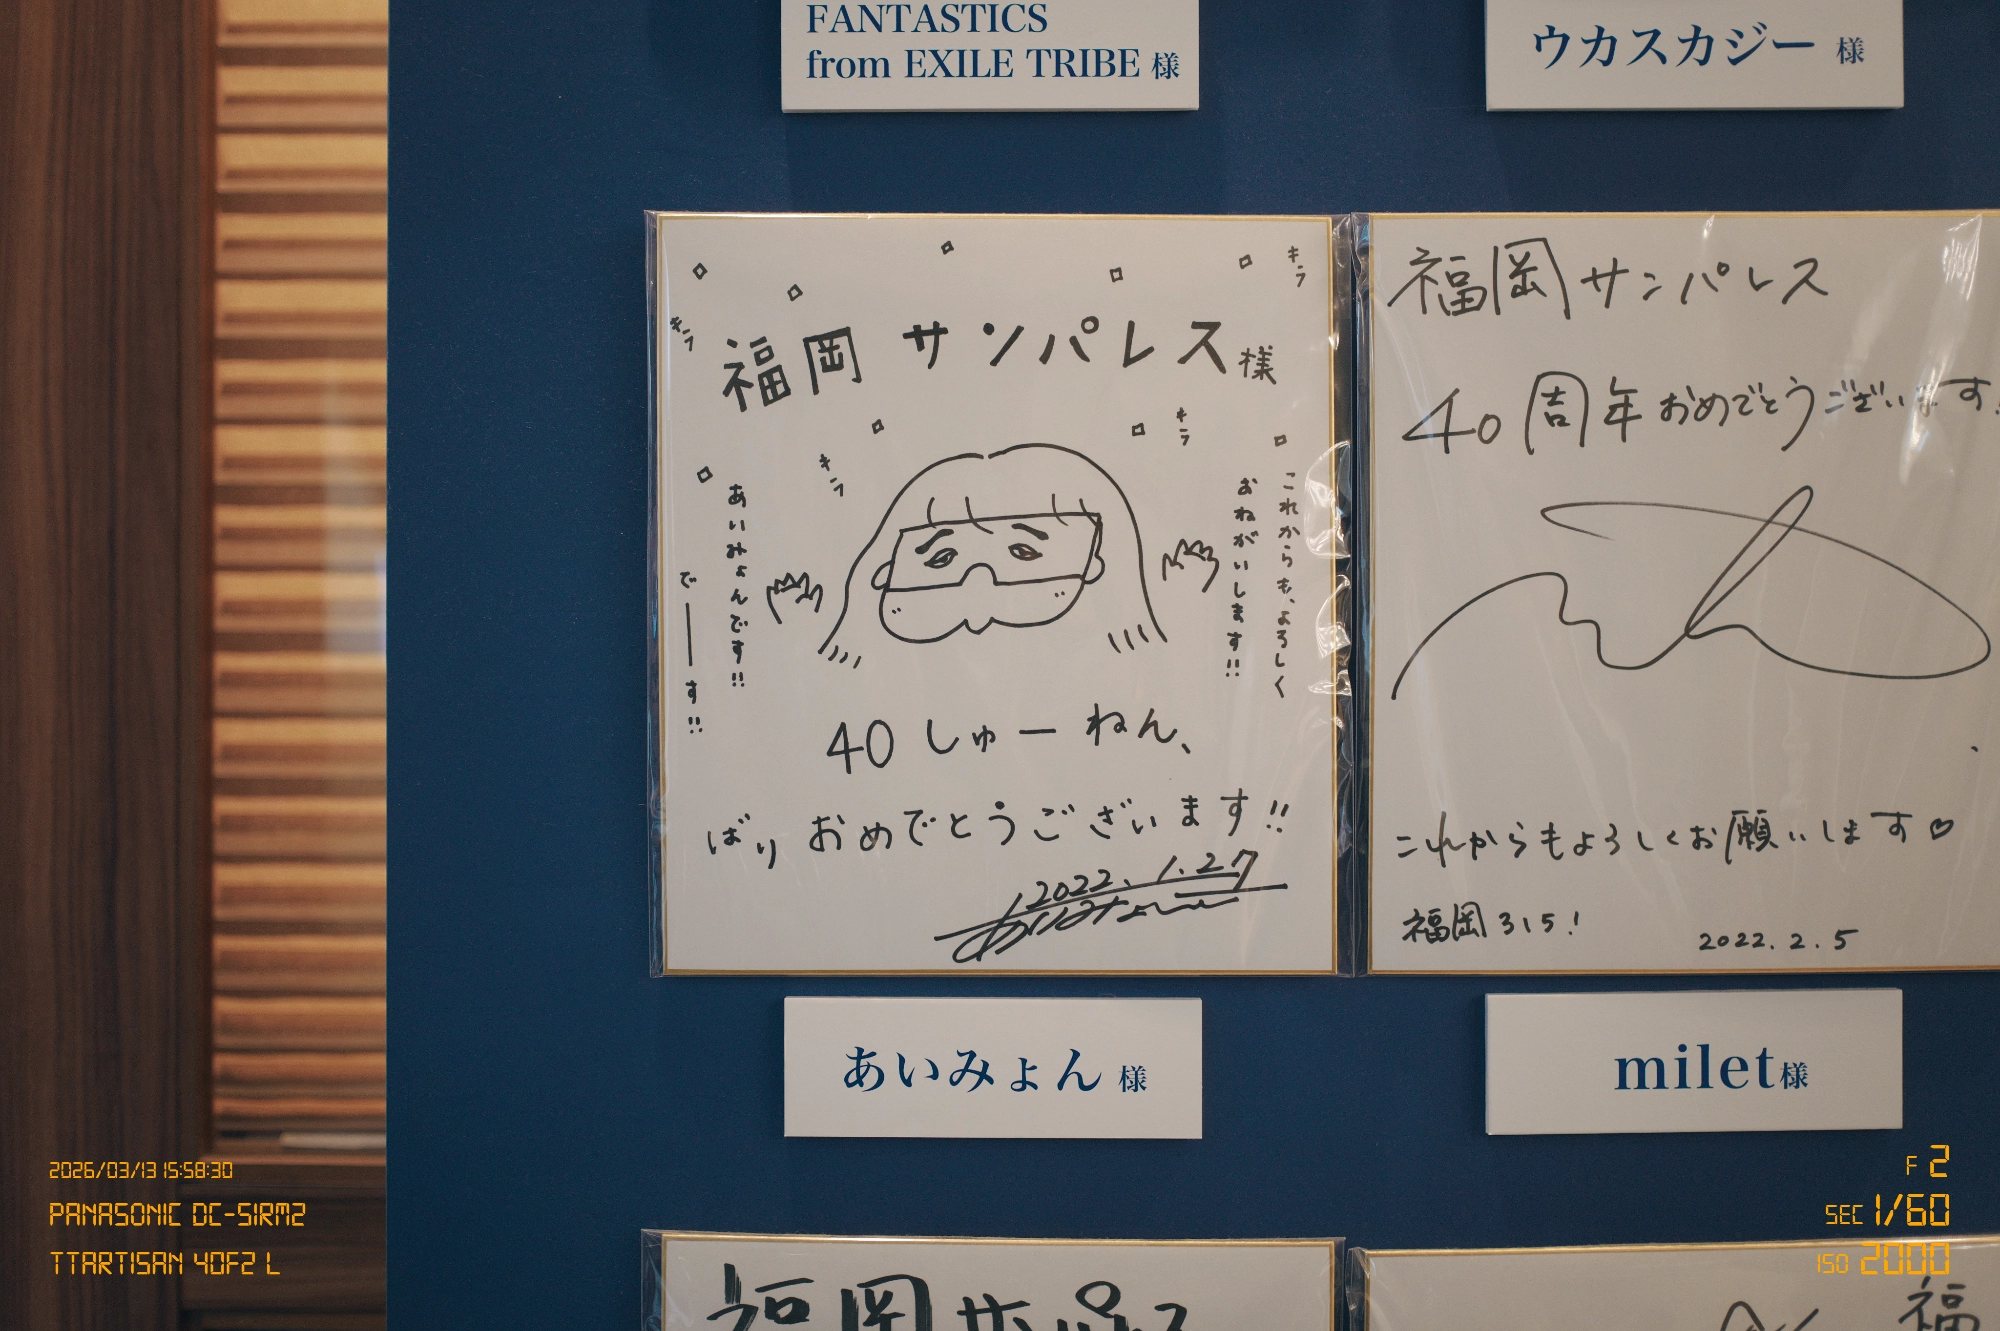 FANTASTICS
from EXILE TRIBE 様
ウカスカジー 様
キラ
キラ
福岡 サンパレス様
キラ
キラ
これからも、よろしく
おねがいします!!
あいみょんです!!
で――す!!
40 しゅーねん、
ばり おめでとうございます!!
2022.1.27
あいみょん 様
福岡サンパレス
40周年おめでとうございます!
これからもよろしくお願いします♡
福岡315!
2022.2.5
milet様
福岡サンパレス
福
2026/03/13 15:58:30
PANASONIC DC-S1RM2
TTARTISAN 40F2 L
F 2
SEC 1/60
ISO 2000